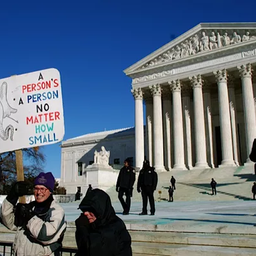 A
PERSON'S
A PERSON
NO
MATTER
HOW
SMALL